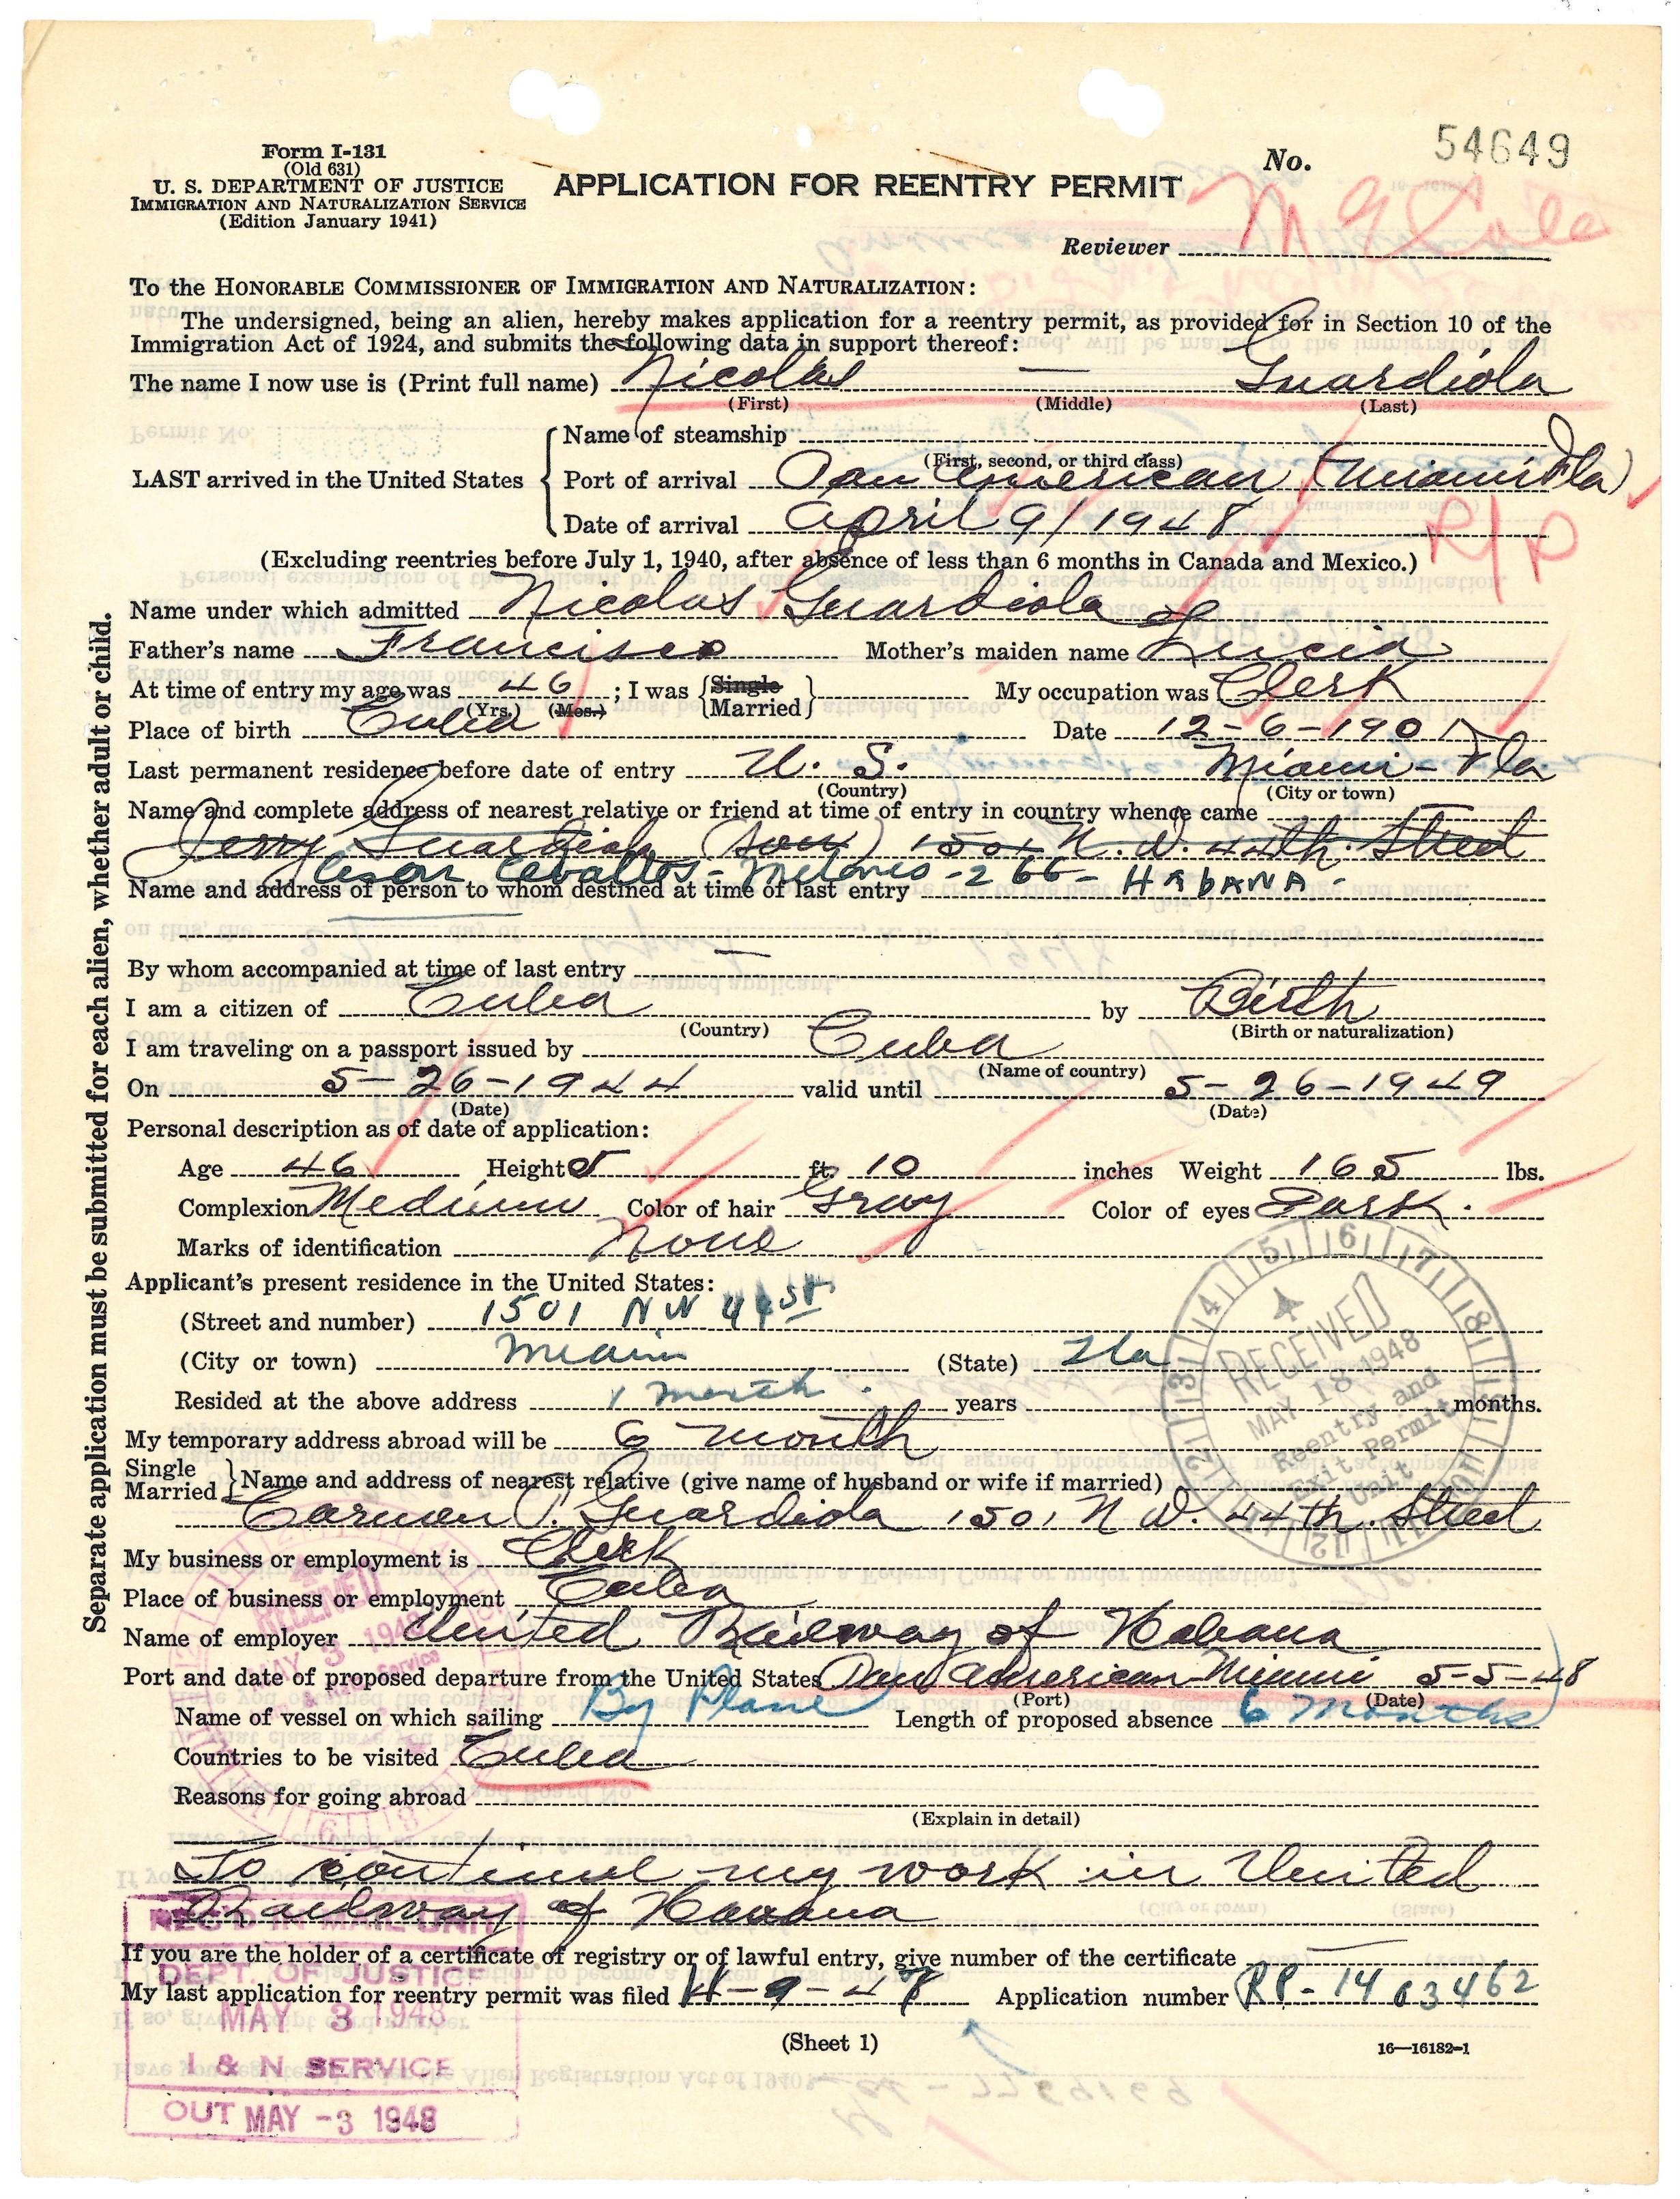 Form I-131
(Old 631)
U. S. DEPARTMENT OF JUSTICE
IMMIGRATION AND NATURALIZATION SERVICE
(Edition January 1941)
APPLICATION FOR REENTRY PERMIT
No. 54649
Reviewer
To the HONORABLE COMMISSIONER OF IMMIGRATION AND NATURALIZATION:
The undersigned, being an alien, hereby makes application for a reentry permit, as provided for in Section 10 of the
Immigration Act of 1924, and submits the following data in support thereof:
The name I now use is (Print full name) Nicolas — Guardiola
(First) (Middle) (Last)
LAST arrived in the United States
Name of steamship
(First, second, or third class)
Port of arrival Pan American (Miami Fla)
Date of arrival April 9/1948
R/P
(Excluding reentries before July 1, 1940, after absence of less than 6 months in Canada and Mexico.)
Name under which admitted Nicolas Guardiola
Father's name Francisco Mother's maiden name Lucia
At time of entry my age was 46 ; I was {Single Married} My occupation was Clerk
(Yrs.) (Mos.)
Place of birth Cuba Date 12-6-1901
Last permanent residence before date of entry U. S. Miami - Fla
(Country) (City or town)
Name and complete address of nearest relative or friend at time of entry in country whence came
Jerry Guardiola (son) 1501 N. W. 44th. Street
Cesar Ceballos - Milanes - 266 - HABANA -
Name and address of person to whom destined at time of last entry
By whom accompanied at time of last entry —
I am a citizen of Cuba by Birth
(Country) (Birth or naturalization)
I am traveling on a passport issued by Cuba
(Name of country)
On 5-26-1944 valid until 5-26-1949
(Date) (Date)
Personal description as of date of application:
Age 46 Height 5 ft. 10 inches Weight 165 lbs.
Complexion Medium Color of hair Gray Color of eyes Dark.
Marks of identification None
Applicant's present residence in the United States:
(Street and number) 1501 NW 44 St
(City or town) Miami (State) Fla
Resided at the above address 1 month years months.
My temporary address abroad will be 6 month
Single
Married } Name and address of nearest relative (give name of husband or wife if married)
Carmen P. Guardiola 1501 N W. 44th. Street
My business or employment is Clerk
Place of business or employment Cuba
Name of employer United Railway of Habana
Port and date of proposed departure from the United States Pan American Miami 5-5-48
(Port) (Date)
Name of vessel on which sailing By Plane Length of proposed absence 6 Months
Countries to be visited Cuba
Reasons for going abroad
(Explain in detail)
To continue my work in United
Railway of Havana
If you are the holder of a certificate of registry or of lawful entry, give number of the certificate —
My last application for reentry permit was filed 4-9-47 Application number RP-1403462
(Sheet 1)
16—16182-1
Separate application must be submitted for each alien, whether adult or child.
RECEIVED
MAY 18 1948
Reentry and
Exit Permit
Unit
RECEIVED
MAY 3 1948
REC'D IN MAIL UNIT
DEPT. OF JUSTICE
MAY 3 1948
I & N SERVICE
OUT MAY -3 1948